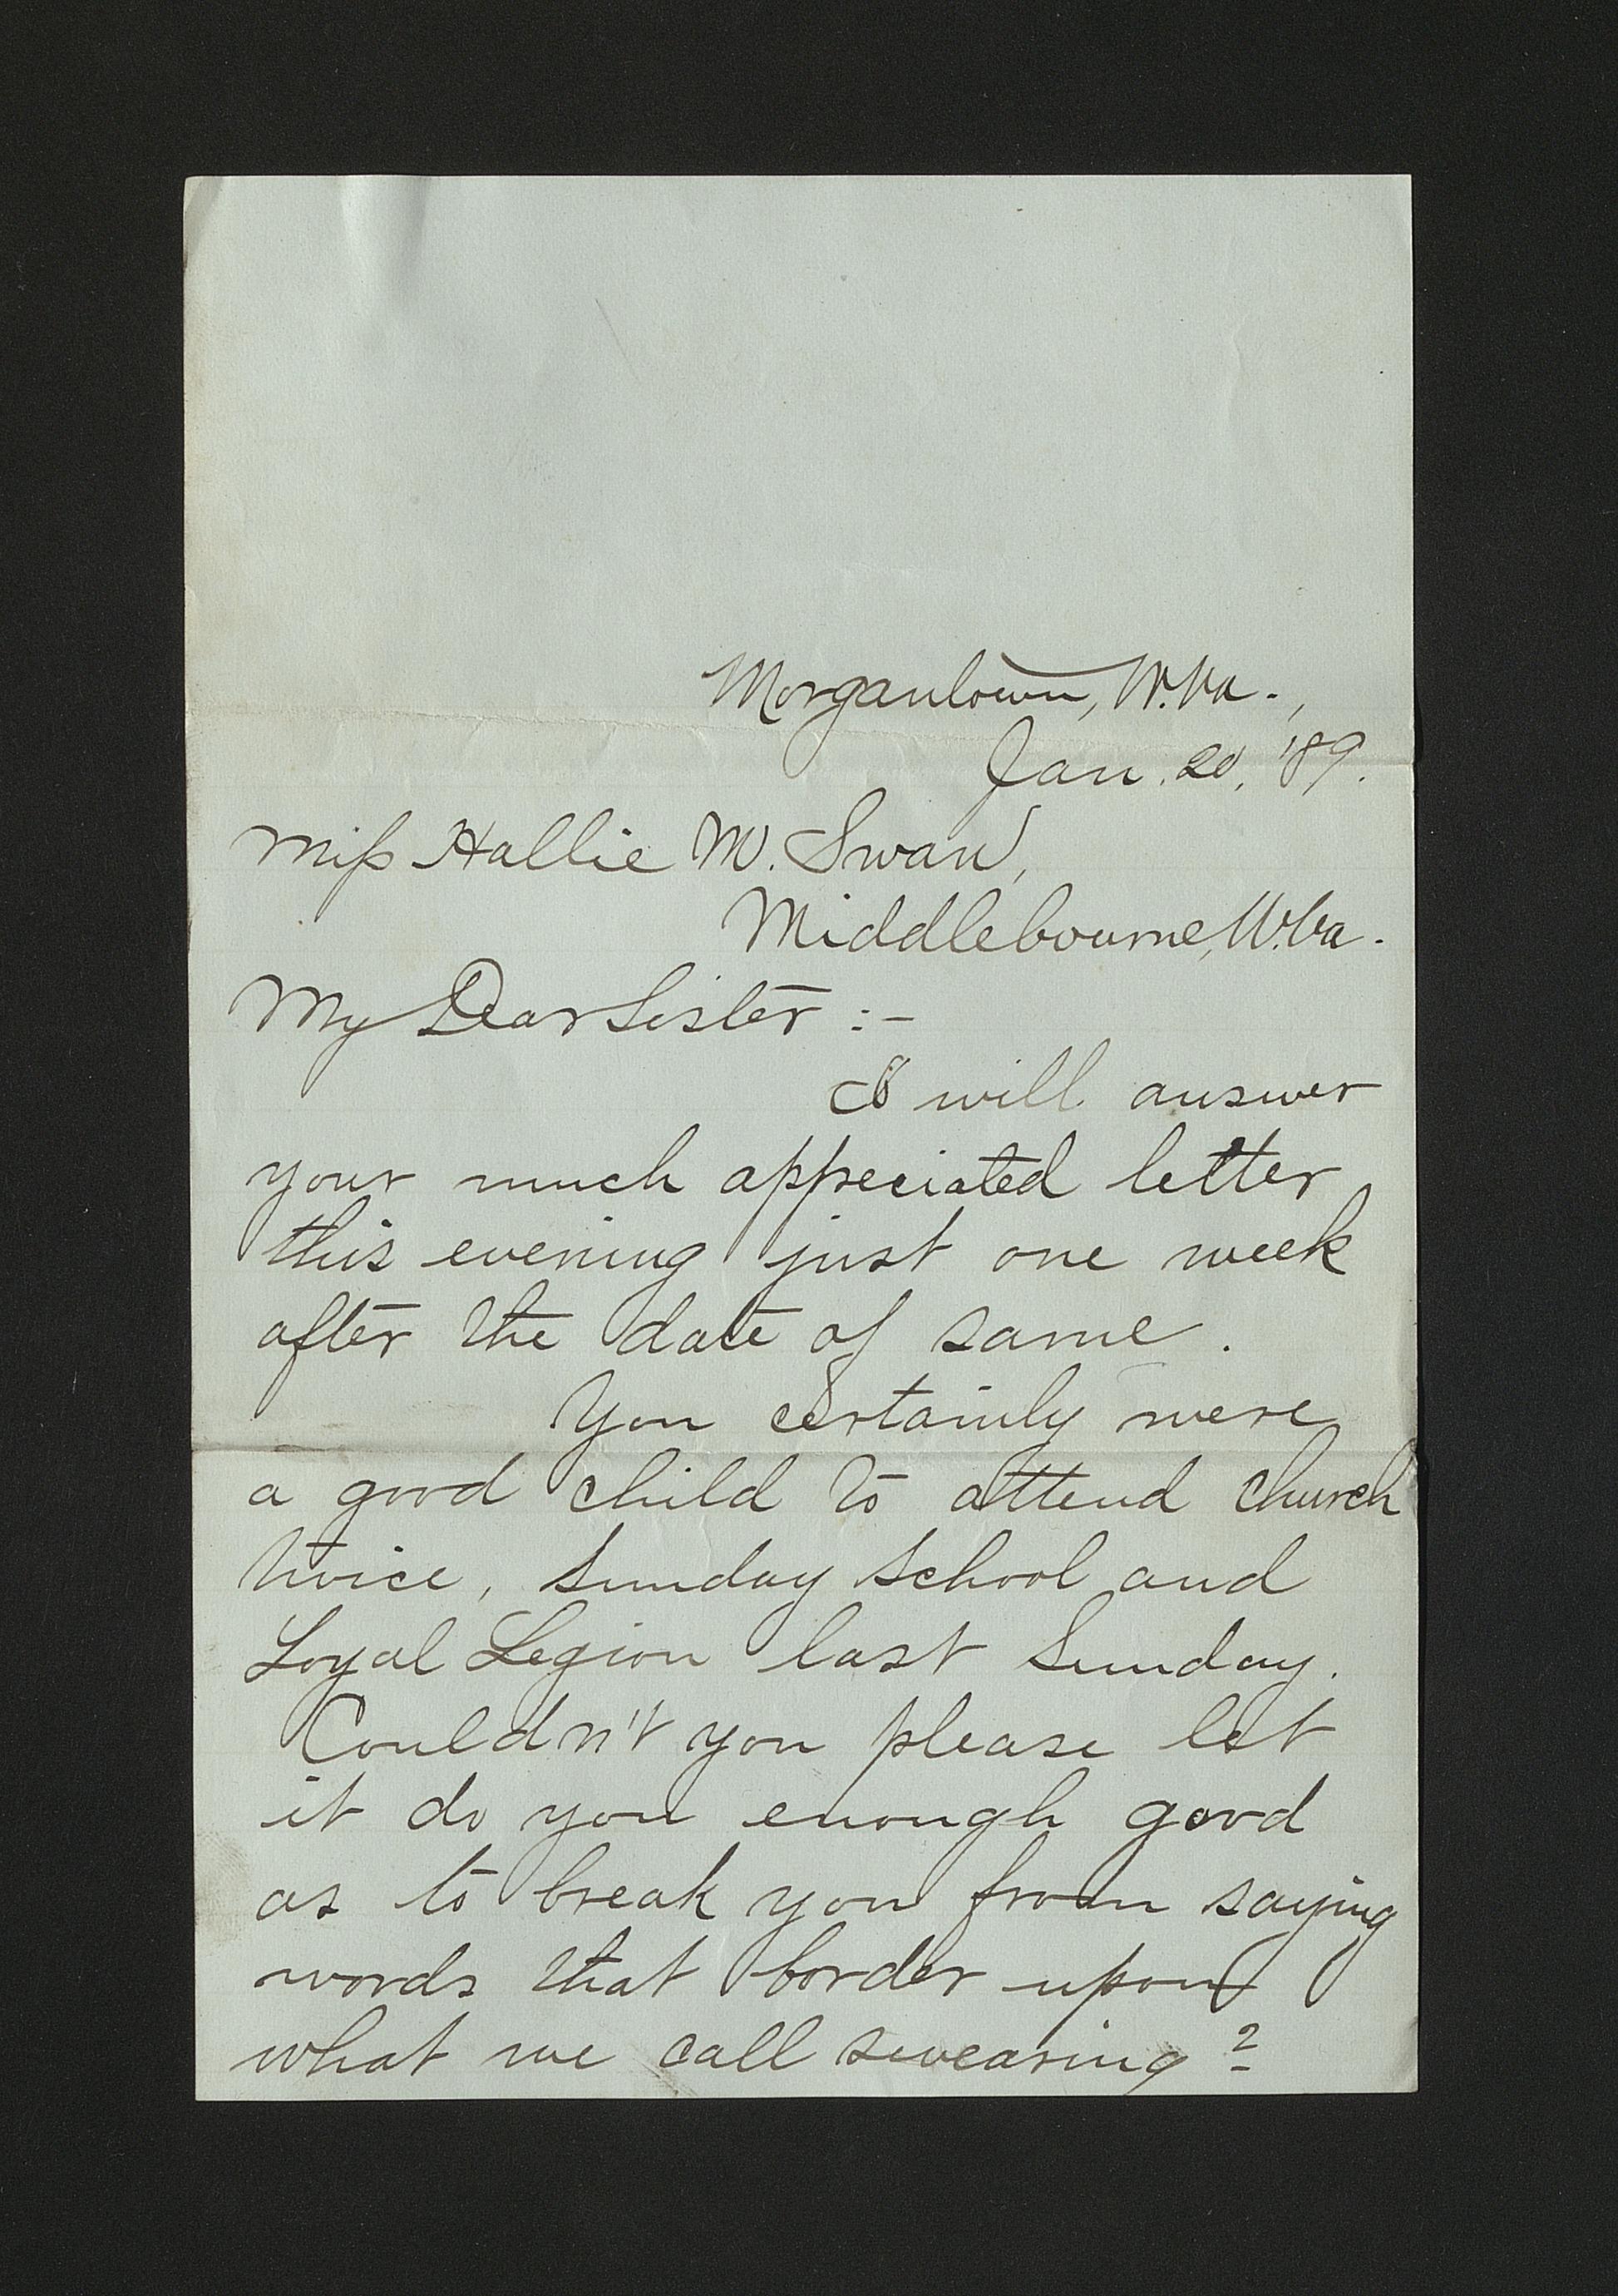 Morgantown, W.Va.,
Jan. 20, '89.
Miss Hallie M. Swan,
Middlebourne, W.Va.
My Dear Sister :-
I will answer
your much appreciated letter
this evening just one week
after the date of same.
You certainly were
a good child to attend church
twice, Sunday School and
Loyal Legion last Sunday.
Couldn't you please let
it do you enough good
as to break you from saying
words that border upon
what we call swearing?